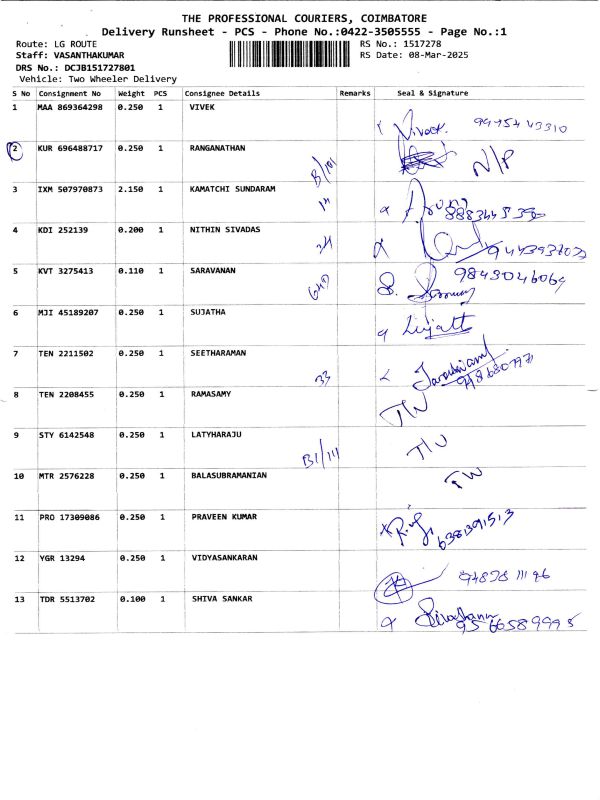 THE PROFESSIONAL COURIERS, COIMBATORE
Delivery Runsheet - PCS - Phone No.:0422-3505555 - Page No.:1
Route: LG ROUTE RS No.: 1517278
Staff: VASANTHAKUMAR RS Date: 08-Mar-2025
DRS No.: DCJB151727801
Vehicle: Two Wheeler Delivery
S No Consignment No Weight PCS Consignee Details Remarks Seal & Signature
1 MAA 869364298 0.250 1 VIVEK Vivek. 9945443310
2 KUR 696488717 0.250 1 RANGANATHAN B/101 N/P
3 IXM 507970873 2.150 1 KAMATCHI SUNDARAM
4 KDI 252139 0.200 1 NITHIN SIVADAS
5 KVT 3275413 0.110 1 SARAVANAN 9843046069
6 MJI 45189207 0.250 1 SUJATHA
7 TEN 2211502 0.250 1 SEETHARAMAN 33
8 TEN 2208455 0.250 1 RAMASAMY
9 STY 6142548 0.250 1 LATYHARAJU B1/111
10 MTR 2576228 0.250 1 BALASUBRAMANIAN
11 PRO 17309086 0.250 1 PRAVEEN KUMAR 6381391513
12 YGR 13294 0.250 1 VIDYASANKARAN
13 TDR 5513702 0.100 1 SHIVA SANKAR 9566589995